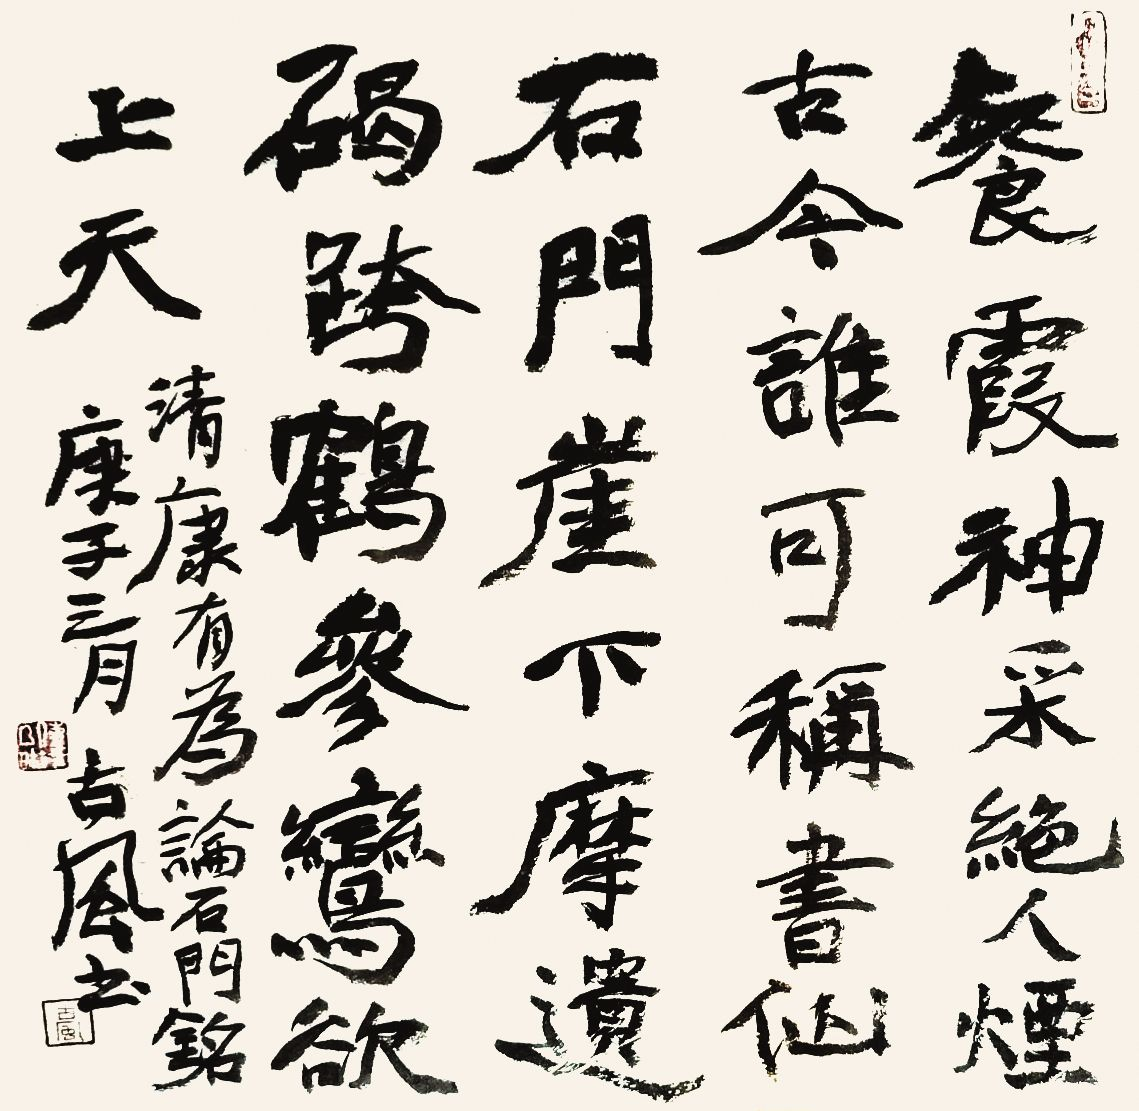 餐霞神采絕人煙
古今誰可稱書仙
石門崖下摩遺
碣跨鶴參鸞欲
上天
清康有為論石門銘
庚子三月古風书
古風